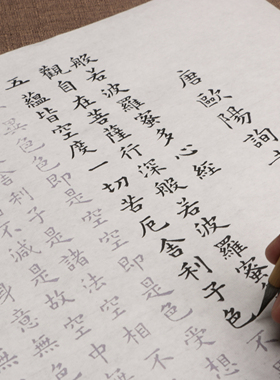 唐歐陽詢
般若波羅蜜多心經
觀自在菩薩行深般若波羅蜜
五蘊皆空度一切苦厄舍利子色
異色色即是空空即是色受想
子是諸法空相不
不減是故空中無
身意無